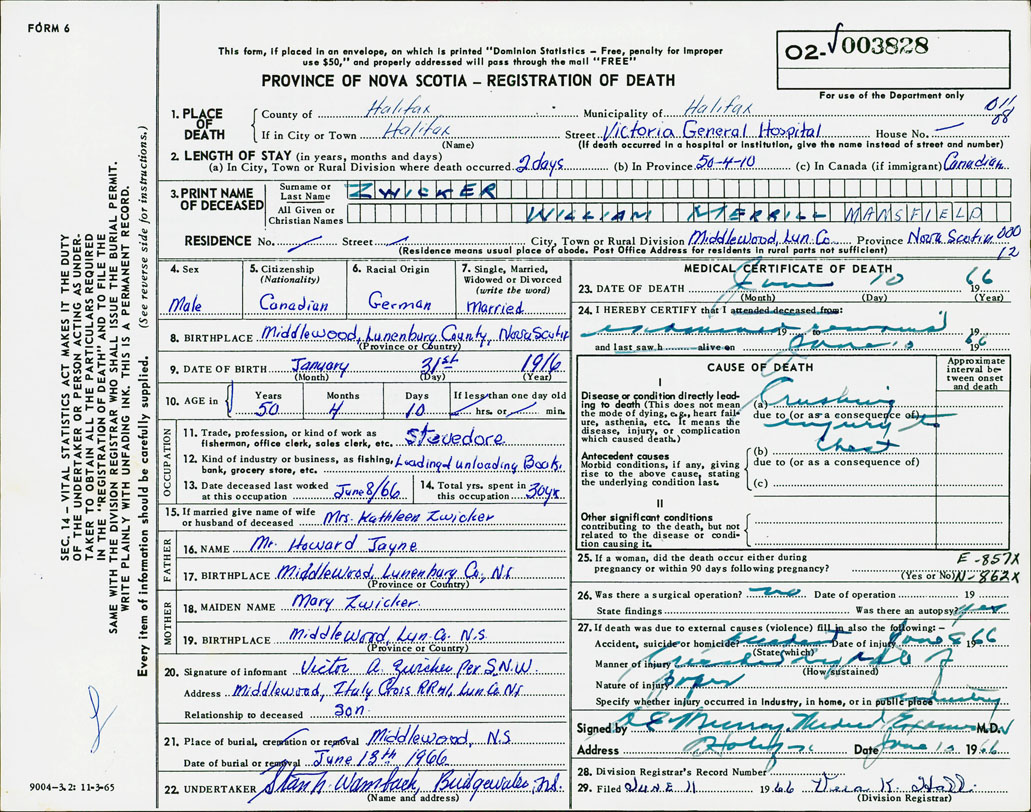 FORM 6
This form, if placed in an envelope, on which is printed "Dominion Statistics – Free, penalty for improper
use $50," and properly addressed will pass through the mail "FREE"
PROVINCE OF NOVA SCOTIA – REGISTRATION OF DEATH
O2- √003828
For use of the Department only
1. PLACE OF DEATH
County of Halifax Municipality of Halifax 011
08
If in City or Town Halifax Street Victoria General Hospital House No. —
(Name) (If death occurred in a hospital or institution, give the name instead of street and number)
2. LENGTH OF STAY (in years, months and days)
(a) In City, Town or Rural Division where death occurred 2 days (b) In Province 50-4-10 (c) In Canada (if immigrant) Canadian
3. PRINT NAME OF DECEASED
Surname or Last Name ZWICKER
All Given or Christian Names WILLIAM MERRILL MANSFIELD
RESIDENCE No. — Street — City, Town or Rural Division Middlewood, Lun. Co. Province Nova Scotia 000
12
(Residence means usual place of abode. Post Office Address for residents in rural parts not sufficient)
4. Sex
Male
5. Citizenship (Nationality)
Canadian
6. Racial Origin
German
7. Single, Married, Widowed or Divorced (write the word)
Married
8. BIRTHPLACE Middlewood, Lunenburg County, Nova Scotia
(Province or Country)
9. DATE OF BIRTH January 31st 1916
(Month) (Day) (Year)
10. AGE in Years Months Days If less than one day old
50 4 10 hrs. or min.
OCCUPATION
11. Trade, profession, or kind of work as
fisherman, office clerk, sales clerk, etc. Stevedore
12. Kind of industry or business, as fishing,
bank, grocery store, etc. Loading & unloading
13. Date deceased last worked
at this occupation June 8/66
14. Total yrs. spent in
this occupation 30 yrs
15. If married give name of wife
or husband of deceased Mrs. Kathleen Zwicker
FATHER
16. NAME Mr. Howard Jayne
17. BIRTHPLACE Middlewood, Lunenburg Co., N.S
(Province or Country)
MOTHER
18. MAIDEN NAME Mary Zwicker.
19. BIRTHPLACE Middlewood, Lun. Co. N.S.
(Province or Country)
20. Signature of informant Victor A. Zwicker Per S.N.W.
Address Middlewood, Italy Cross R.R.#1, Lun. Co. N.S
Relationship to deceased Son
21. Place of burial, cremation or removal Middlewood, N.S
Date of burial or removal June 13th 1966
22. UNDERTAKER Stan N. Wamback, Bridgewater, N.S.
(Name and address)
MEDICAL CERTIFICATE OF DEATH
23. DATE OF DEATH June 10 1966
(Month) (Day) (Year)
24. I HEREBY CERTIFY that I attended deceased from:
examined remains 19 to 19
and last saw h alive on June 10 1966
CAUSE OF DEATH
Approximate interval between onset and death
I
Disease or condition directly leading to death (This does not mean the mode of dying, e.g., heart failure, asthenia, etc. It means the disease, injury, or complication which caused death.)
(a) Crushing
due to (or as a consequence of)
injury to
Chest
Antecedent causes
Morbid conditions, if any, giving rise to the above cause, stating the underlying condition last.
(b)
due to (or as a consequence of)
(c)
II
Other significant conditions
contributing to the death, but not related to the disease or condition causing it.
25. If a woman, did the death occur either during
pregnancy or within 90 days following pregnancy?
(Yes or No)
E-857X
N-862X
26. Was there a surgical operation? no Date of operation 19
State findings Was there an autopsy? yes
27. If death was due to external causes (violence) fill in also the following:—
Accident, suicide or homicide? accident Date of injury June 8 1966
(State which)
Manner of injury Crushed by of
(How sustained)
Nature of injury
Specify whether injury occurred in industry, in home, or in public place industry
Signed by Murray Medical Examiner M.D.
Address Date June 10 1966
28. Division Registrar's Record Number
29. Filed JUNE 11 1966 K. Hall
(Division Registrar)
SEC. 14 – VITAL STATISTICS ACT MAKES IT THE DUTY
OF THE UNDERTAKER OR PERSON ACTING AS UNDER-
TAKER TO OBTAIN ALL THE PARTICULARS REQUIRED
IN THE "REGISTRATION OF DEATH" AND TO FILE THE
SAME WITH THE DIVISION REGISTRAR WHO SHALL ISSUE THE BURIAL PERMIT.
WRITE PLAINLY WITH UNFADING INK. THIS IS A PERMANENT RECORD.
Every item of information should be carefully supplied. (See reverse side for instructions.)
9004-3.2: 11-3-65